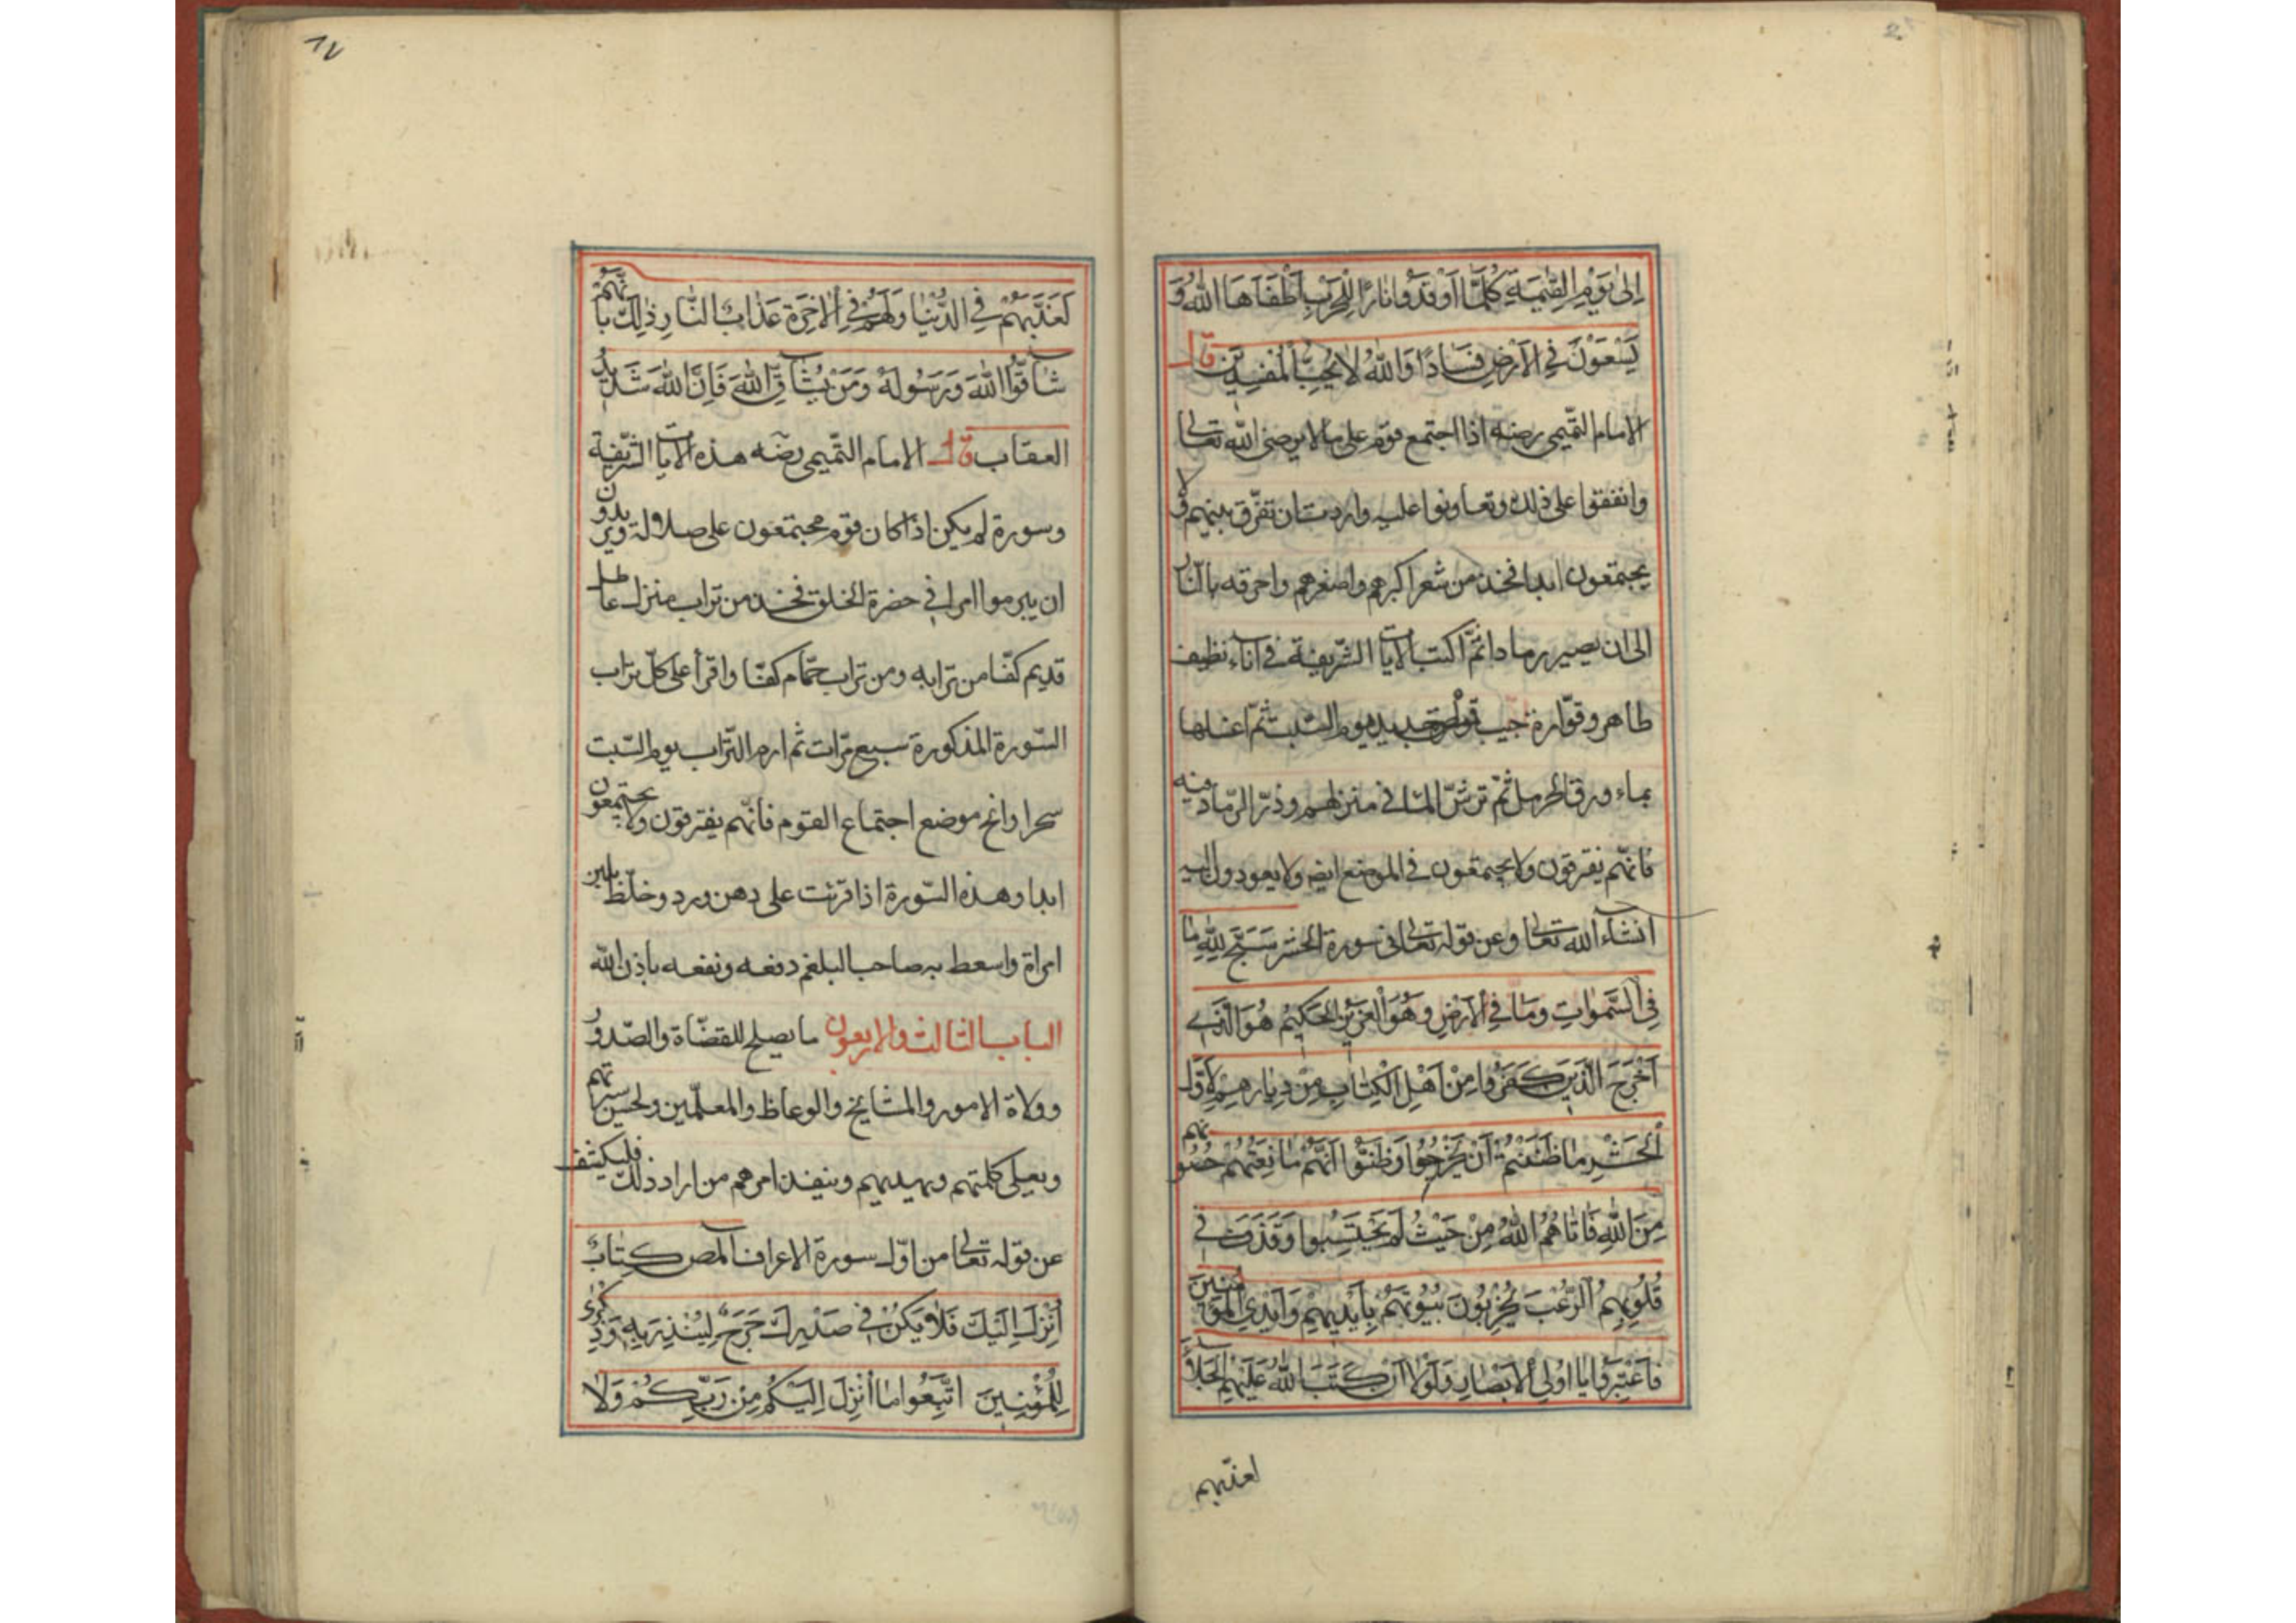 اِلٰى يَوْمِ الْقِيٰمَةِ كُلَّمَا اَوْقَدُوا نَارًا لِلْحَرْبِ اَطْفَاَهَا اللّٰهُ وَ
يَسْعَوْنَ فِي الْاَرْضِ فَسَادًا وَاللّٰهُ لَا يُحِبُّ الْمُفْسِدِينَ قال
الامام التميمى رضه اذا اجتمع قوم على ما لا يرضى الله تعالى
واتفقوا على ذلك وتعاونوا عليه واردت ان تفرق بينهم ولا
يجتمعون ابدا فخذ من شعر اكبرهم واصغرهم واحرقه بالنار
الى ان يصير رمادا ثمّ اكتب الايات الشريفة فى اناء نظيف
طاهر وقوّارة جيب جديد يوم السبت ثمّ اغسلها
بماء ورق الحرمل ثمّ ترشّ الما فى منزلهم وذرّ الرّماد فيه
فانّهم يفترقون ولا يجتمعون فى الموضع ايضا ولا يعودون اليه
انشاء الله تعالى وعن قوله تعالى فى سورة الحشر سَبَّحَ لِلّٰهِ مَا
فِى السَّمٰوَاتِ وَمَا فِي الْاَرْضِ وَهُوَ الْعَزِيْزُ الْحَكِيْمُ هُوَ الَّذِي
اَخْرَجَ الَّذِيْنَ كَفَرُوا مِنْ اَهْلِ الْكِتٰابِ مِنْ دِيٰارِهِمْ لِاَوَّلِ
الْحَشْرِ مٰا ظَنَنْتُمْ اَنْ يَخْرُجُوا وَظَنُّوا اَنَّهُمْ مٰانِعَتُهُمْ حُصُونُهُمْ
مِنَ اللّٰهِ فَاَتٰاهُمُ اللّٰهُ مِنْ حَيْثُ لَمْ يَحْتَسِبُوا وَقَذَفَ فِي
قُلُوْبِهِمُ الرُّعْبَ يُخْرِبُوْنَ بُيُوْتَهُمْ بِاَيْدِيهِمْ وَاَيْدِي الْمُؤْمِنِينَ
فَاعْتَبِرُوا يٰا اُولِي الْاَبْصٰارِ وَلَوْلٰا اَنْ كَتَبَ اللّٰهُ عَلَيْهِمُ الْجَلٰاءَ
لعذّبهم
١٧
لَعَذَّبَهُمْ فِي الدُّنْيٰا وَلَهُمْ فِي الْاٰخِرَةِ عَذٰابُ النّٰارِ ذٰلِكَ بِاَنَّهُمْ
شٰاقُّوا اللّٰهَ وَرَسُوْلَهُ وَمَنْ يُشٰاقِّ اللّٰهَ فَاِنَّ اللّٰهَ شَدِيدُ
العقاب قال الامام التّميمى رضه هذه الايات الشّريفة
وسورة لم يكن اذا كان قوم مجتمعون على ضلالة ويريدون
ان يبرموا امرا فى حضرة الخلق فخذ من تراب منزل عاطل
قديم كفّا من ترابه ومن تراب حمّام كفّا واقرأ على كلّ تراب
السّورة المذكورة سبع مرّات ثم ارم التّراب يوم السّبت
سحرا وانح موضع اجتماع القوم فانّهم يفترقون ولا يجتمعون
ابدا وهذه السّورة اذا قرئت على دهن ورد وخلّط بلبن
امراة واسعط به صاحب البلغم دفعه ونفعه باذن الله
الباب الثالث والاربعون ما يصلح للقضاة والصّدور
وولاة الامور والمشايخ والوعاظ والمعلّمين ولحسن سيرتهم
ويعلى كلمتهم ويهديهم وينفذ امرهم من اراد ذلك فليكتف
عن قوله تعالى من اوّل سورة الاعراف المص كِتٰابٌ
اُنْزِلَ اِلَيْكَ فَلٰا يَكُنْ فِي صَدْرِكَ حَرَجٌ لِيُنْذِرَ بِهِ وَذِكْرٰى
لِلْمُؤْمِنِينَ اتَّبِعُوا مٰا اُنْزِلَ اِلَيْكُمْ مِنْ رَبِّكُمْ وَلٰا